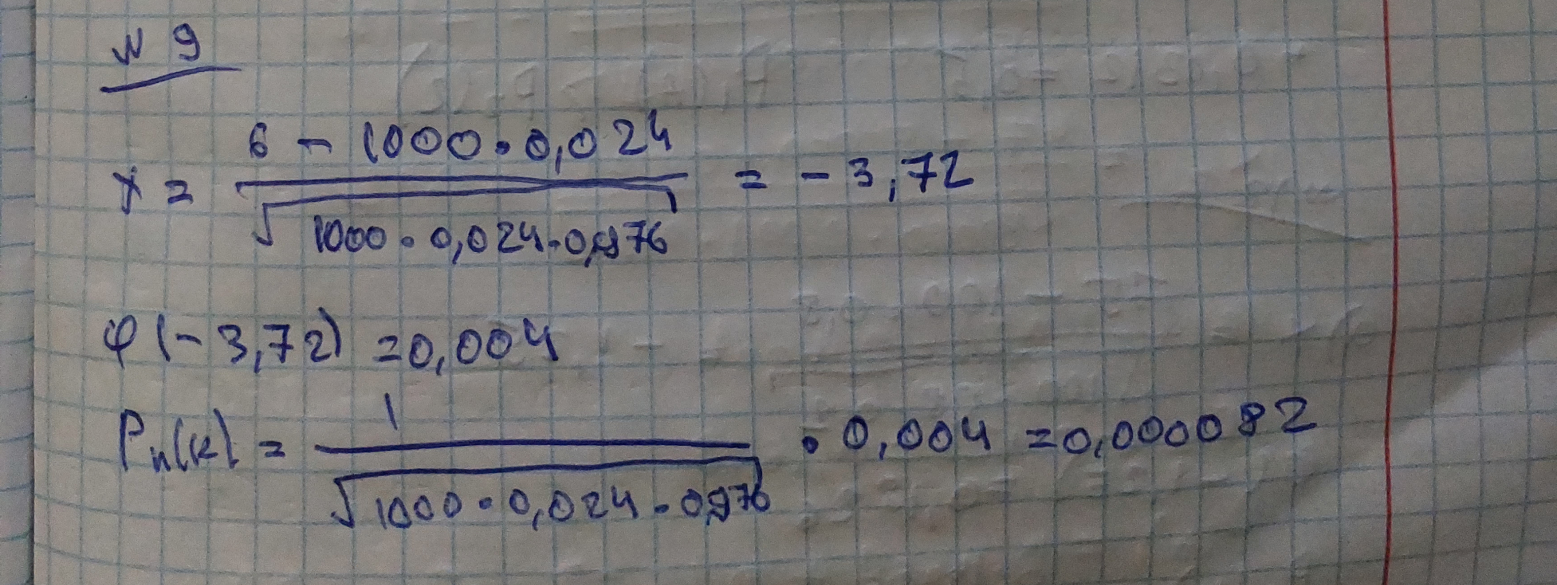 № 9
x = (6 - 1000 · 0,024) / √(1000 · 0,024 · 0,976) = -3,72
φ(-3,72) = 0,004
Pn(k) = 1 / √(1000 · 0,024 · 0,976) · 0,004 = 0,000082